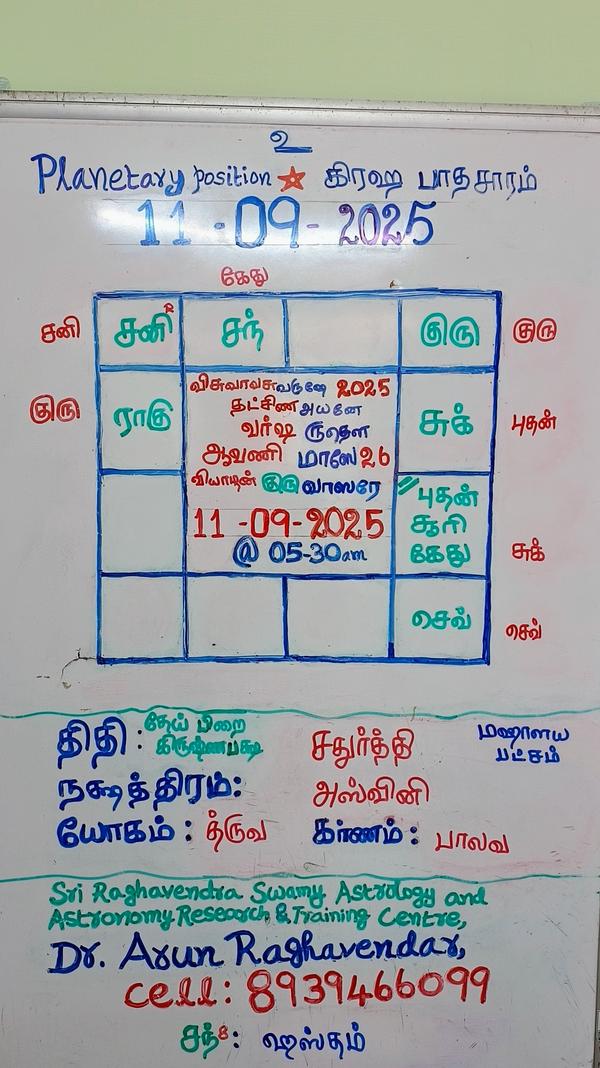 உ
Planetary position ☆ கிரஹ பாதசாரம்
11-09-2025
கேது
சனி சனி R சந் குரு குரு
குரு ராகு சுக் புதன்
விசுவாவசுவருஷே 2025
தட்சிண அயனே
வர்ஷ ருதௌ
ஆவணி மாஸே 26
வியாழன் குரு வாஸரே
11-09-2025
@ 05-30am
புதன்
சூரி
கேது சுக்
செவ் செவ்
திதி: தேய் பிறை சதுர்த்தி மஹாளய
கிருஷ்ணபக்ஷ பட்சம்
நக்ஷத்திரம்: அஸ்வினி
யோகம்: த்ருவ கர்ணம்: பாலவ
Sri Raghavendra Swamy Astrology and
Astronomy Research & Training Centre,
Dr. Arun Raghavendar,
cell: 8939466099
சந் 8: ஹஸ்தம்